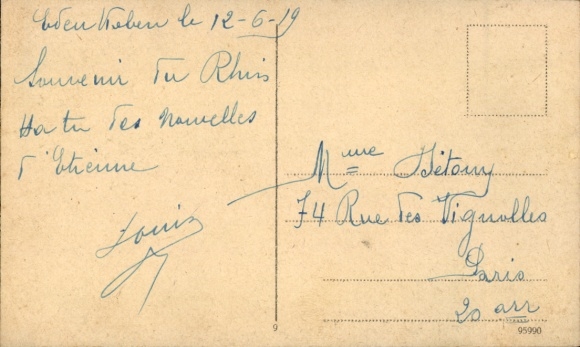 le 12-6-19
Souvenir du Rhin
Ha tu des nouvelles
d'Etienne
Louis
Mme
74 Rue des Vignolles
Paris
20 arr
9
95990